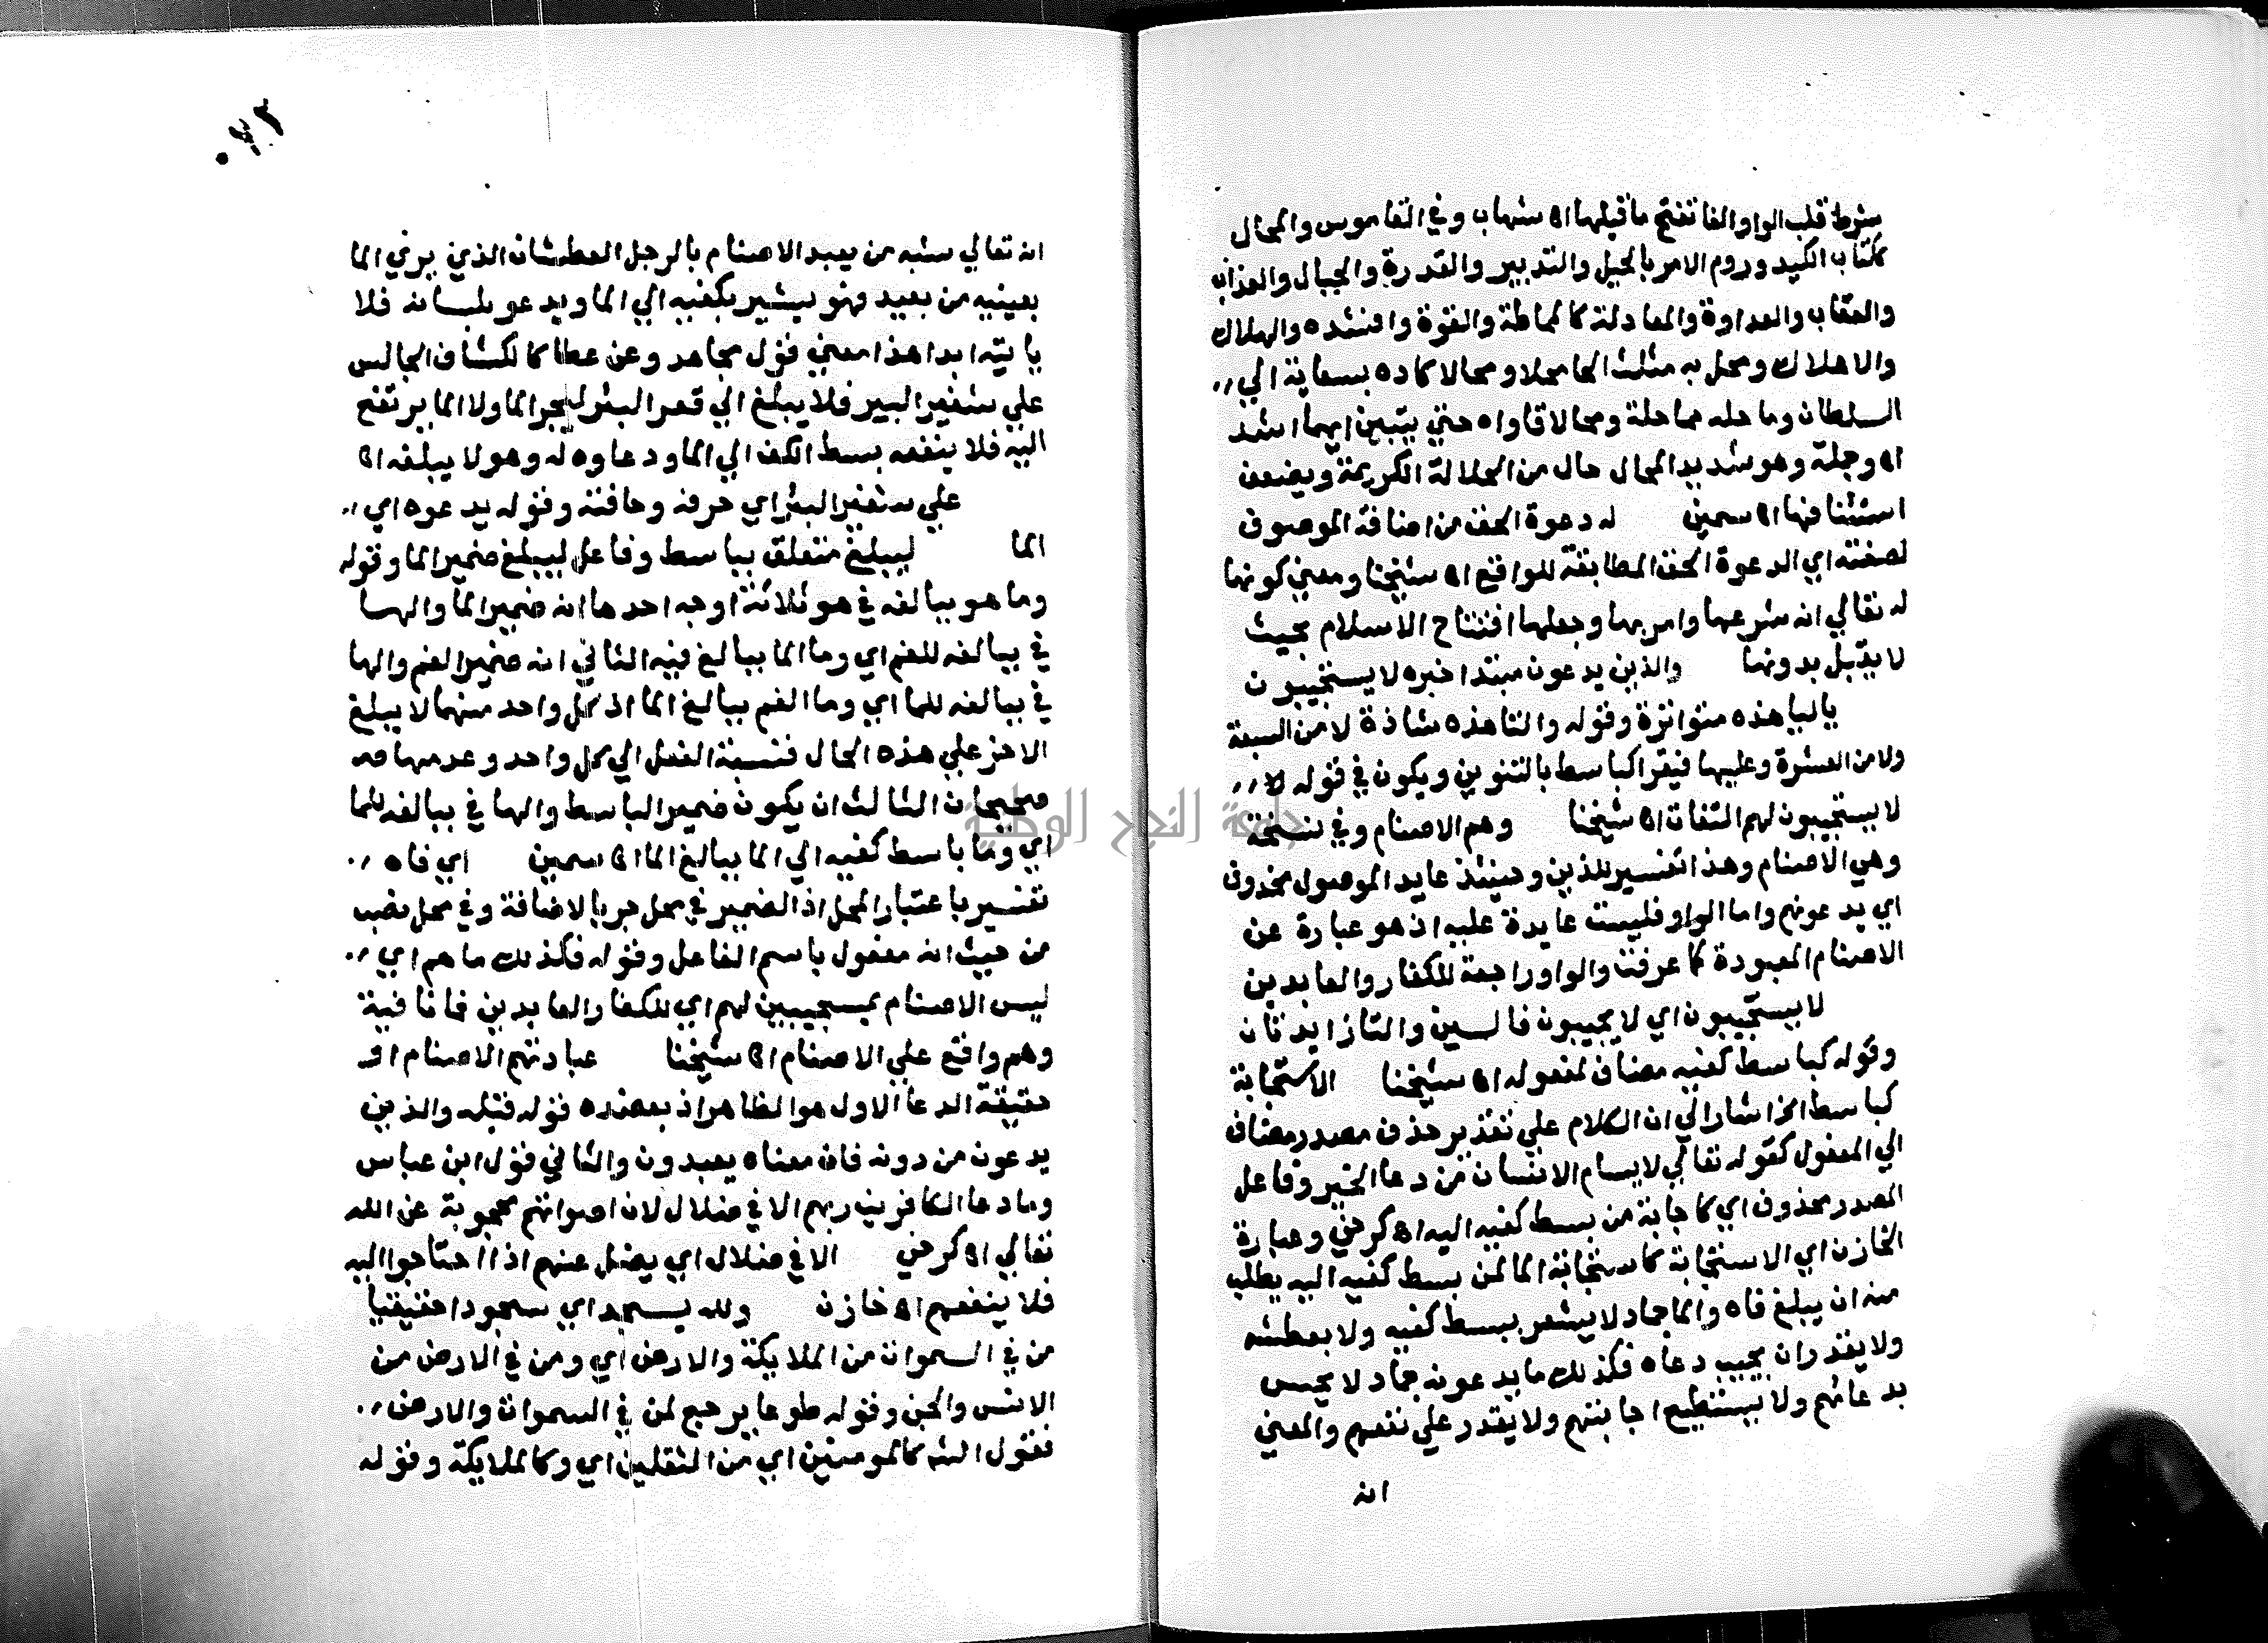 شرط قلب الواو الفا تفتح ما قبلها اه شهاب وفي القاموس والمحال
ككتاب الكيد وروم الامر بالحيل والتدبير والقدرة والجبال والعذاب
والعقاب والعداوة والمعادلة كالمماحلة والقوة والشدة والهلاك
والاهلاك ومحل به مثلث الحا محلا ومحالا كاده بسعاية الي
السلطان وما حله مماحلة ومحالا قاواه حتي يتبين ايهما اشد
اه وجملة وهو شديد المحال حال من الجلالة الكريمة ويضعف
استئنافها اه سمين له دعوة الحق من اضافة الموصوف
لصفته اي الدعوة الحق المطابقة للواقع اه شيخنا ومعني كونها
له تعالي انه شرعها وامر بها وجعلها افتتاح الاسلام بحيث
لا يقبل بدونها والذين يدعون مبتدا خبره لا يستجيبون
باليا هذه متواترة وقوله والتا هذه شاذة لا من السبعة
ولا من العشرة وعليها فيقرا كباسط بالتنوين ويكون في قوله لا
لا يستجيبون لهم التفات اه شيخنا وهم الاصنام وفي نسخة
وهي الاصنام وهذا تفسير للذين وحينئذ عايد الموصول محذوف
اي يدعونهم واما الواو فليست عايدة عليه اذ هو عبارة عن
الاصنام المعبودة كما عرفت والواو راجعة للكفار والعابدين
لا يستجيبون اي لا يجيبون فالسين والتا زايدتان
وقوله كباسط كفيه مضاف لمفعوله اه شيخنا الاستجابة
كباسط الخ اشار الي ان الكلام علي تقدير حذف مصدر مضاف
الي المفعول كقوله تعالي لا يسام الانسان من دعا الخير وفاعل
المصدر محذوف اي كاجابة من بسط كفيه اليه اه كرخي وعبارة
الخازن اي الا استجابة كاستجابة الما لمن بسط كفيه اليه يطلب
منه ان يبلغ فاه والما جماد لا يشعر ببسط كفيه ولا بعطشه
ولا يقدر ان يجيب دعاه فكذلك ما يدعونه جماد لا يحس
بدعائهم ولا يستطيع اجابتهم ولا يقدر علي نفعهم والمعني
انه
انه تعالي شبه من يعبد الاصنام بالرجل العطشان الذي يري الما
بعينيه من بعيد فهو يشير بكفيه الي الما ويدعو بلسانه فلا
ياتيه ابدا هذا معني قول مجاهد وعن عطا كالكشاف الجالس
علي شفير البير فلا يبلغ الي قعر البئر ليجر الما ولا الما يرتفع
اليه فلا ينفعه بسط الكف الي الما ودعاوه له وهو لا يبلغه اه
علي شفير البئر اي حرفه وحافته وقوله يدعوه اي
الما ليبلغ متعلق بباسط وفاعل ليبلغ ضمير الما وقوله
وما هو ببالغه في هو ثلاثة اوجه احدها انه ضمير الما والها
في ببالغه للفم اي وما الما ببالغ فيه الثاني انه ضمير الفم والها
في ببالغه للما اي وما الفم ببالغ الما اذ كل واحد منهما لا يبلغ
الاخر علي هذه الحال فنسبة الفعل الي كل واحد وعدمها
صحيحان الثالث ان يكون ضمير الباسط والها في ببالغه للما
اي وما باسط كفيه الي الما ببالغ الما اه سمين اي فاه
تفسير باعتبار المحل اذ الضمير في محل جر بالاضافة وفي محل نصب
من حيث انه مفعول باسم الفاعل وقوله فكذلك ما هم اي
ليس الاصنام بمستجيبين لهم اي للكفار العابدين فما نافية
وهم واقع علي الاصنام اه شيخنا عبادتهم الاصنام او
حقيقة الدعا الاول هو الظاهر اذ يعضده قوله قبله والذين
يدعون من دونه فان معناه يعبدون والثاني قول ابن عباس
وما دعا الكافرين ربهم الا في ضلال لان اصواتهم محجوبة عن الله
تعالي اه كرخي الا في ضلال اي يضل عنهم اذا احتاجوا اليه
فلا ينفعهم اه خازن ولله يسجد اي سجودا حقيقيا
من في السموات من الملايكة والارض اي ومن في الارض من
الانس والجن وقوله طوعا يرجع لمن في السموات والارض
فقول الشه كالمومنين اي من الثقلين اي وكالملايكة وقوله
جامعة النجاح الوطنية